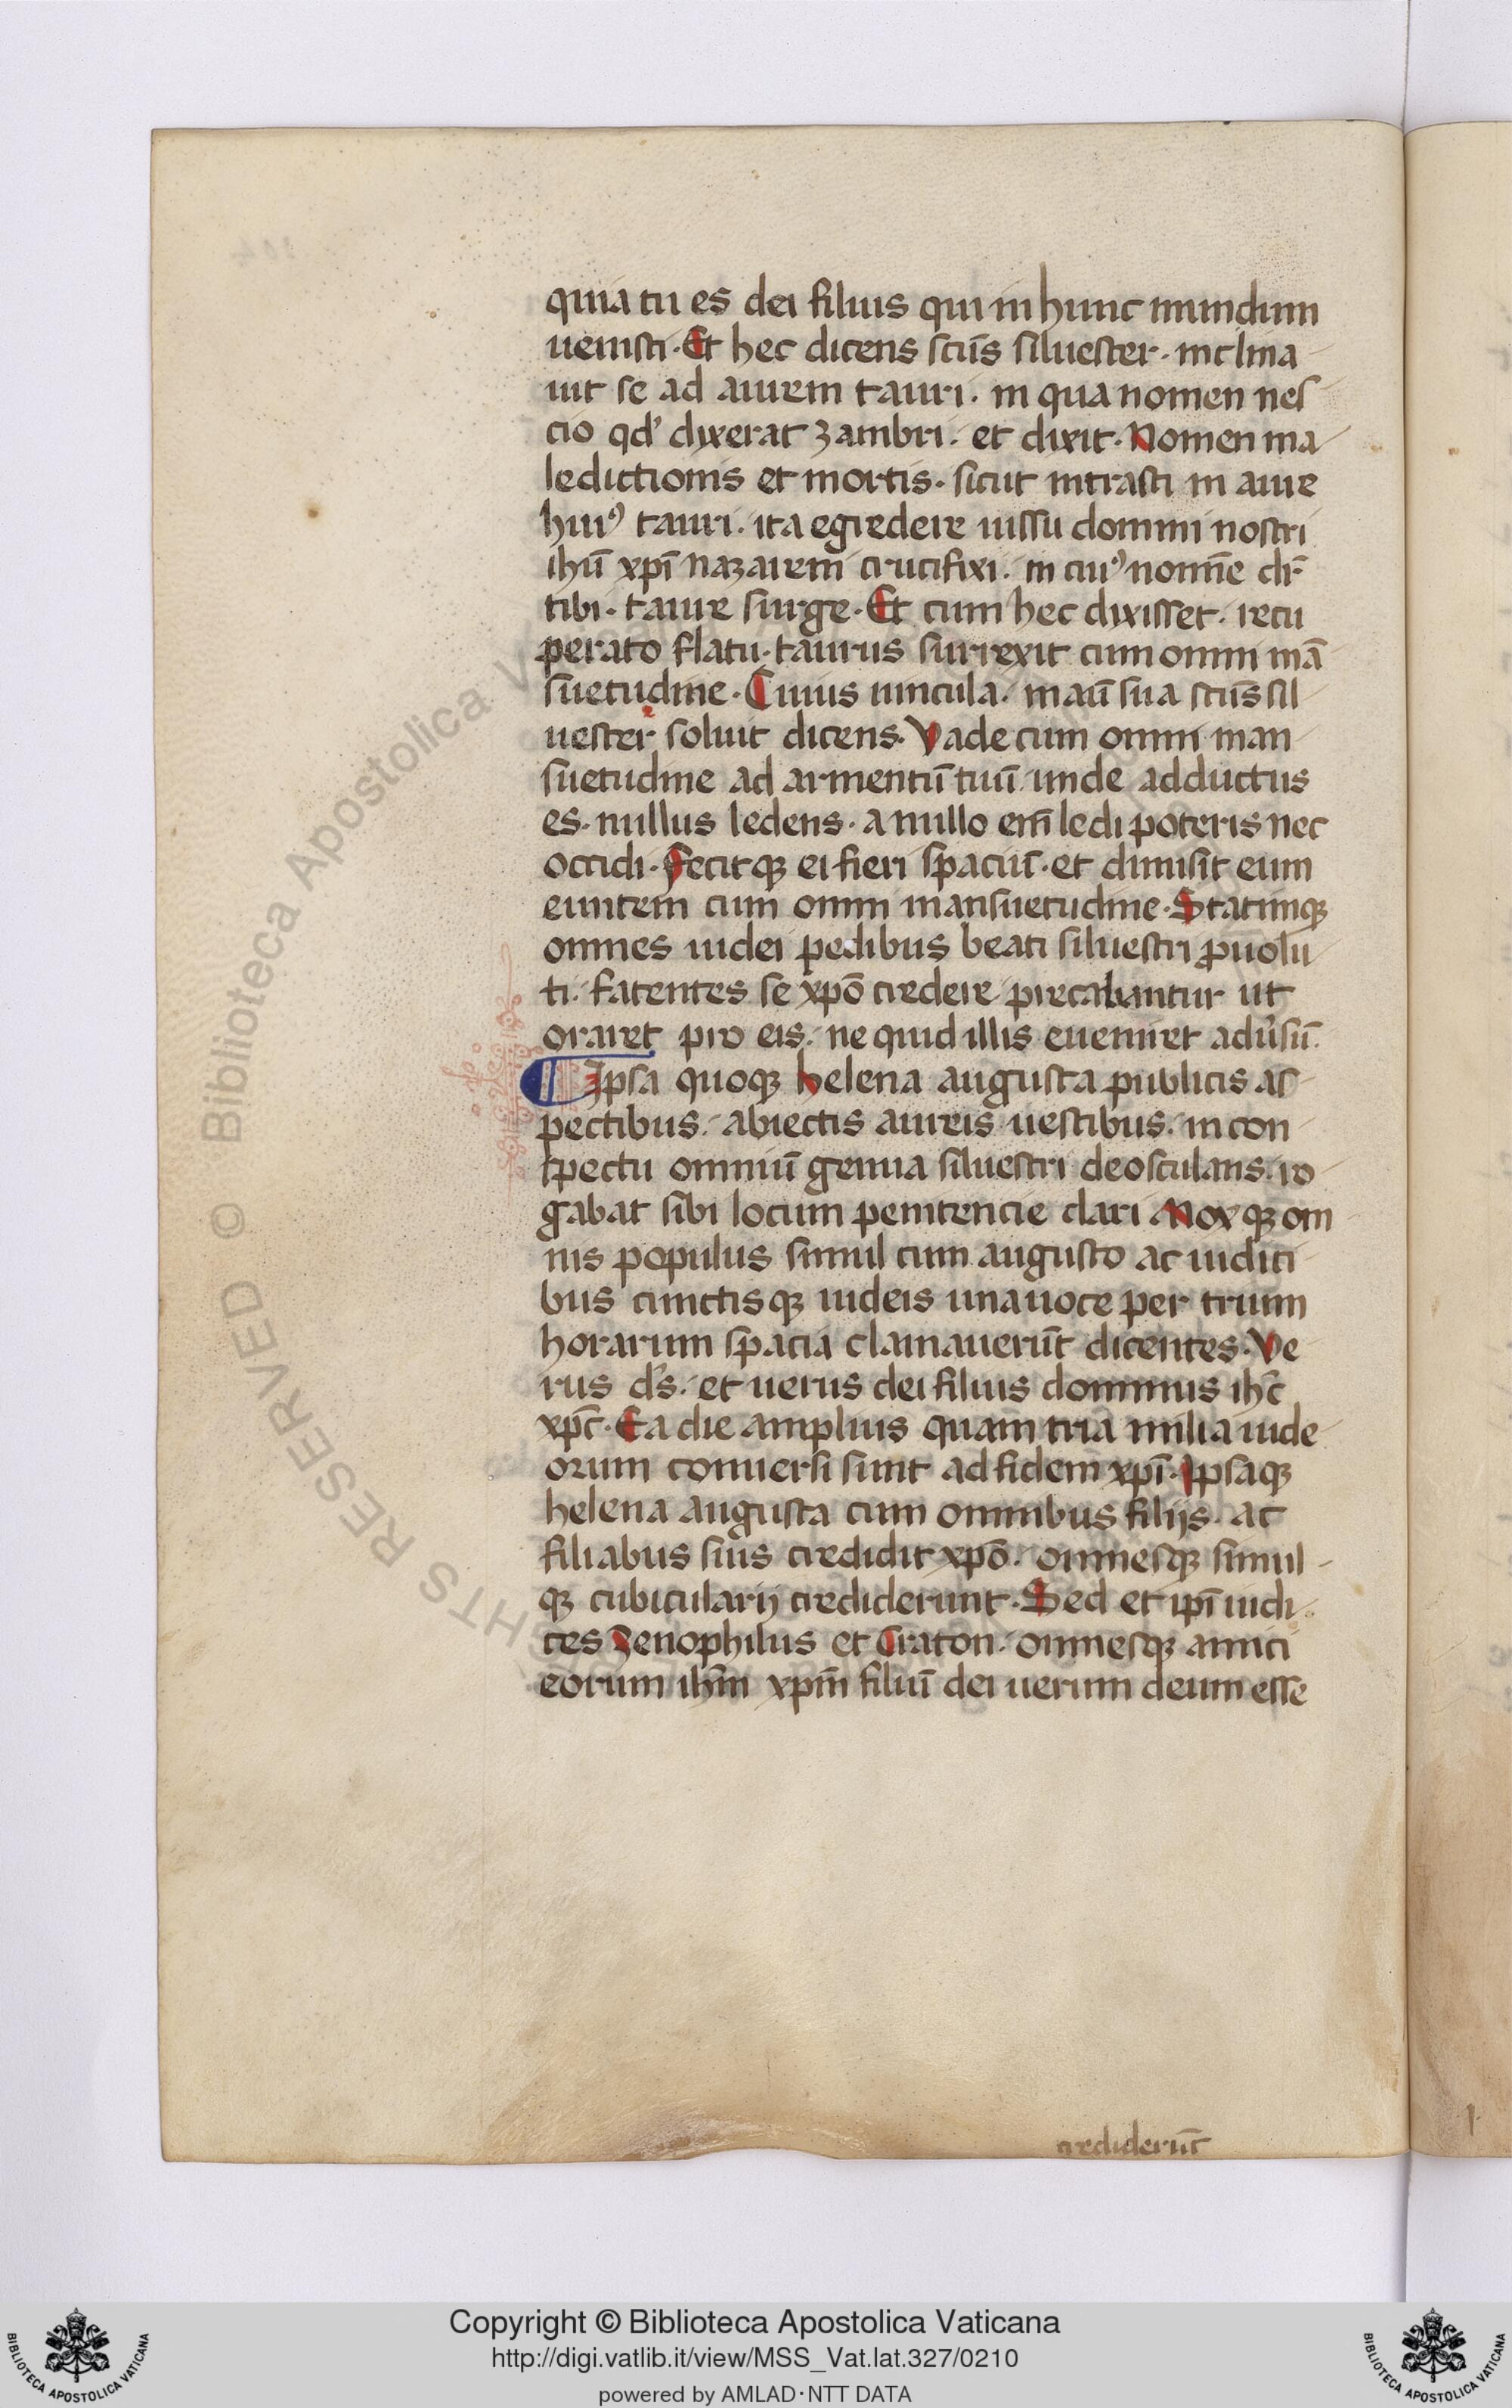 quia tu es dei filius qui in hunc mundum
uenisti. Et hec dicens scūs siluester. inclina
uit se ad aurem tauri. in qua nomen nes
cio qd' dixerat zambri. et dixit. Nomen ma
ledictionis et mortis. sicut intrasti in aure
huiꝰ tauri. ita egredere iussu domini nostri
ihū xpī nazareni crucifixi. in cuiꝰ nomīe dr̄
tibi. taure surge. Et cum hec dixisset. recu
perato flatu. taurus surrexit cum omni mā
suetudine. Cuius uincula. manū sua scūs sil
uester soluit dicens. Vade cum omni man
suetudine ad armentū tuū unde adductus
es. nullus ledens. a nullo enī ledi poteris nec
occidi. Fecitqꝫ ei fieri spaciū. et dimisit eum
euntem cum omni mansuetudine. Statimqꝫ
omnes iudei pedibus beati siluestri ꝓuolu
ti. fatentes se xpō credere precabantur ut
oraret pro eis. ne quid illis eueniret adu̾sū.
Ipsa quoqꝫ helena augusta publicis as
pectibus. abiectis aureis uestibus. in con
spectu omniū genua siluestri deosculans. ro
gabat sibi locum penitencie dari Moxqꝫ om
nis populus simul cum augusto ac iudici
bus cunctisqꝫ iudeis una uoce per trium
horarum spacia clamauerūt dicentes. Ve
rus d's. et uerus dei filius dominus ihc̄
xpc̄. Ea die amplius quam tria milia iude
orum conuersi sunt ad fidem xpī. Ipsaqꝫ
helena augusta cum omnibus filijs. ac
filiabus suis credidit xpō. omnesqꝫ simul
qꝫ cubicularij crediderunt. Sed et ipī iudi
ces Zenophilus et Craton. omnesqꝫ amici
eorum ihm̄ xpm̄ filiū dei uerum deum esse
crediderūt
Biblioteca Apostolica V
© RESERVED
HTS
Copyright © Biblioteca Apostolica Vaticana
http://digi.vatlib.it/view/MSS_Vat.lat.327/0210
powered by AMLAD·NTT DATA
BIBLIOTECA APOSTOLICA VATICANA
BIBLIOTECA APOSTOLICA VATICANA